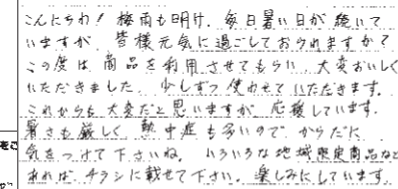 こんにちわ! 梅雨も明け、毎日暑い日が続いて
いますが、皆様元気に過ごしておられますか?
この度は商品を利用させてもらい、大変おいしく
いただきました。少しずつ使わせていただきます。
これからも大変だと思いますが、応援しています。
暑さも厳しく 熱中症も多いので からだに
気をつけて下さいね。いろいろな地域限定商品など
あれば、チラシに載せて下さい。楽しみにしています。